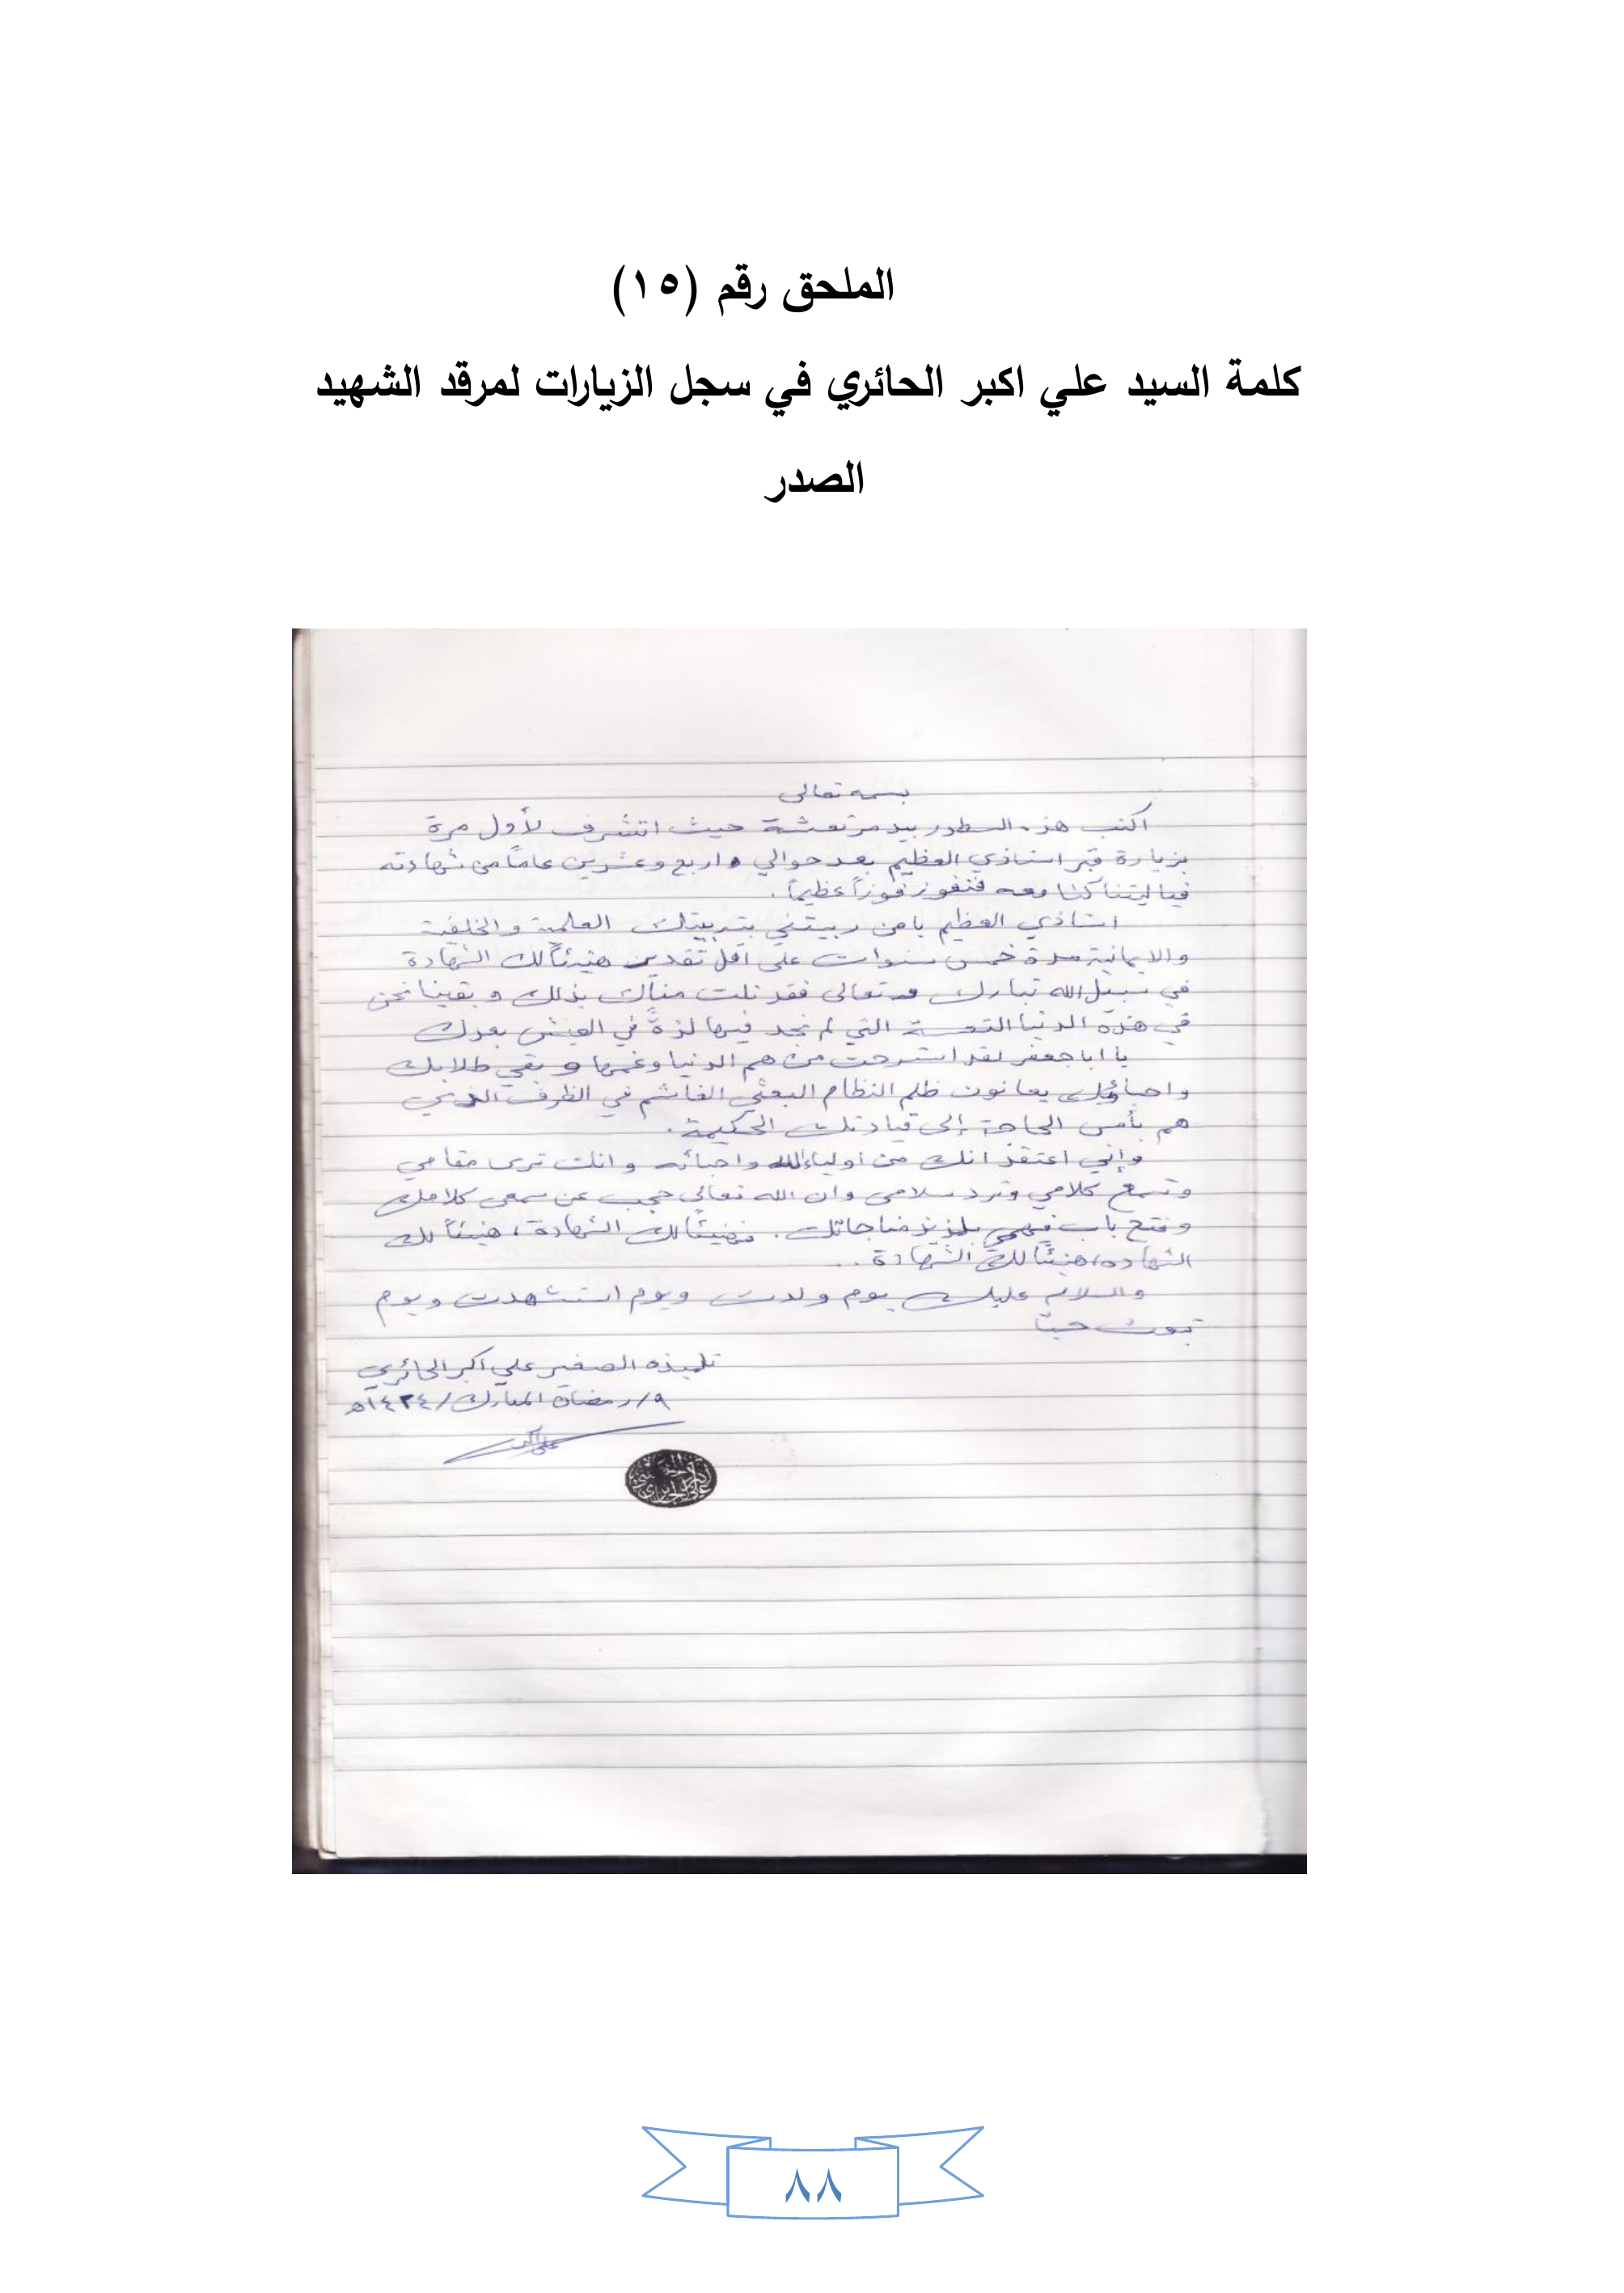 الملحق رقم (١٥)
كلمة السيد علي اكبر الحائري في سجل الزيارات لمرقد الشهيد
الصدر
بسمه تعالى
اكتب هذه السطور بيد مرتعشة حيث اتشرف لأول مرة
بزيارة قبر استاذي العظيم بعد حوالي اربع وعشرين عاماً من شهادته
فياليتنا كنا معه فنفوز فوزاً عظيماً.
استاذي العظيم يا من ربيتني بتربيتك العلمية والخلقية
والايمانية مدة خمس سنوات على اقل تقدير هنيئاً لك الشهادة
في سبيل الله تبارك وتعالى فقد نلت مناك بذلك وبقينا نحن
في هذه الدنيا التعسة التي لم نجد فيها لذةً في العيش بعدك
يا ابا جعفر لقد استرحت من هم الدنيا وغمها وبقي طلابك
واحباؤك يعانون ظلم النظام البعثي الغاشم في الظرف الذي
هم بأمس الحاجة إلى قيادتك الحكيمة.
وإني اعتقد انك من أولياء الله واحبائه وانك ترى مقامي
وتسمع كلامي وترد سلامي وان الله تعالى حجب عن سمعي كلامك
وفتح باب فهمي بلذيذ مناجاتك. فهنيئاً لك الشهادة، هنيئاً لك
الشهادة، هنيئاً لك الشهادة..
والسلام عليك يوم ولدت ويوم استشهدت ويوم
تبعث حياً
تلميذه الصغير علي اكبر الحائري
٩/رمضان المبارك/١٤٢٤هـ
علي اكبر
٨٨